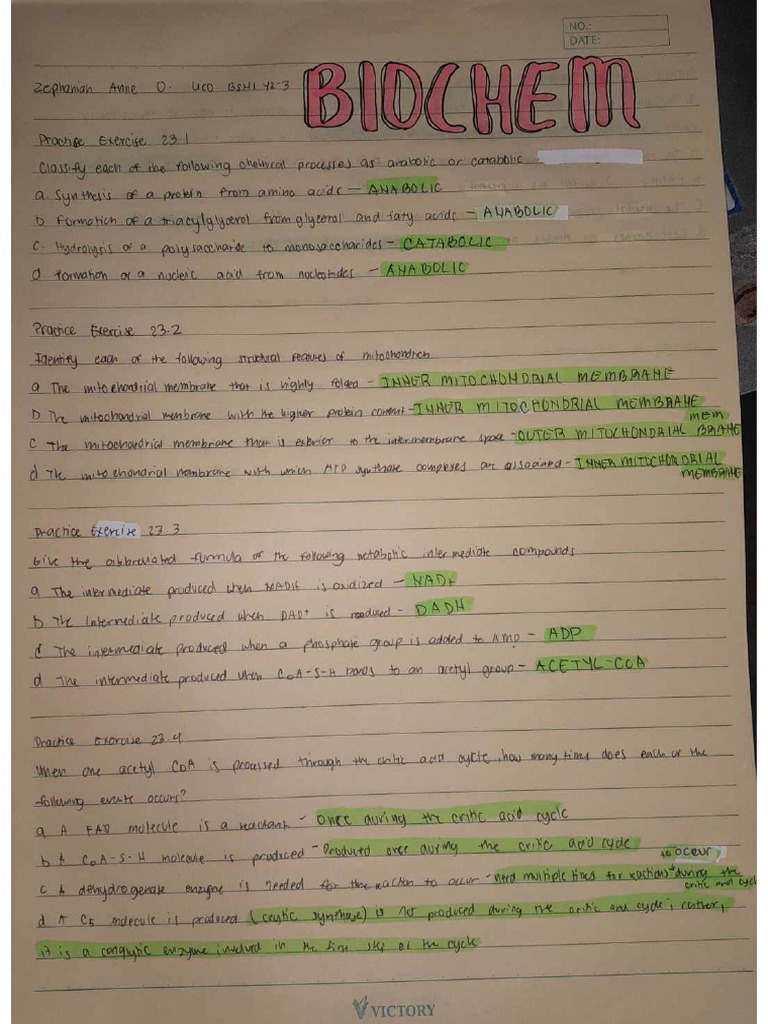 NO.:
DATE:
Zephaniah Anne O. Uco BSHI Y2-3
BIOCHEM
Practice Exercise 23.1
Classify each of the following chemical processes as anabolic or catabolic
a. Synthesis of a protein from amino acids — ANABOLIC
b Formation of a triacylglycerol from glycerol and faty acids - ANABOLIC
c. Hydrolysis of a polysaccharide to monosaccharides - CATABOLIC
d. formation of a nucleic acid from nucleotides - ANABOLIC
Practice Exercise 23-2
Identify each of the following structural features of mitochondrion
a The mitochondrial membrane that is highly folded - INNER MITOCHONDRIAL MEMBRANE
b The mitochondrial membrane with the higher protein content - INNER MITOCHONDRIAL MEMBRANE
c The mitochondrial membrane that is exterior to the intermembrane space - OUTER MITOCHONDRIAL MEMBRANE
d The mitochondrial membrane with which ATP synthase complexes are associated - INNER MITOCHONDRIAL MEMBRANE
Practice Exercise 23.3
Give the abbreviated formula of the following metabolic intermediate compounds
a The intermediate produced when NADH is oxidized - NAD+
b The Intermediate produced when DAD+ is reduced - DADH
c The intermediate produced when a phosphate group is added to AMP - ADP
d The intermediate produced when CoA-S-H bonds to an acetyl group - ACETYL-COA
Practice Exercise 23.4
When one acetyl CoA is processed through the citric acid cycle, how many times does each of the
following events occurs?
a A FAD molecule is a reactant - Once during the critic acid cycle
b A CoA-S-H molecule is produced - Produced once during the critic acid cycle
c A dehydrogenase enzyme is needed for the reaction to occur - need multiple times for reactions to occur during the critic acid cycle
d A C5 molecule is produced ( synthase) is not produced during the critic acid cycle; rather,
it is a enzyme involved in the first step of the cycle
VICTORY